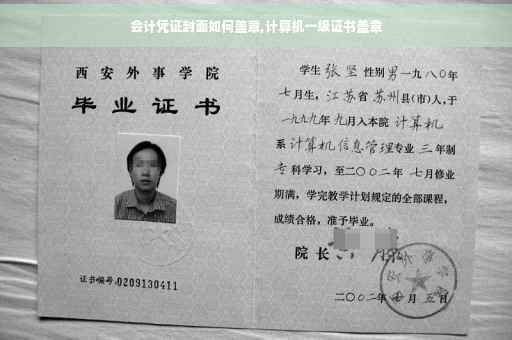 会计凭证封面如何盖章,计算机一级证书盖章
西安外事学院
毕业证书
证书编号:0209130411
学生 张坚 性别 男 一九八〇年
七月生，江苏省 苏州县(市)人,于
一九九九年 九月入本院 计算机
系 计算机信息管理专业 三 年制
专科学习，至二〇〇二年 七月修业
期满，学完教学计划规定的全部课程，
成绩合格，准予毕业。
院长
二〇〇二年 月 五日